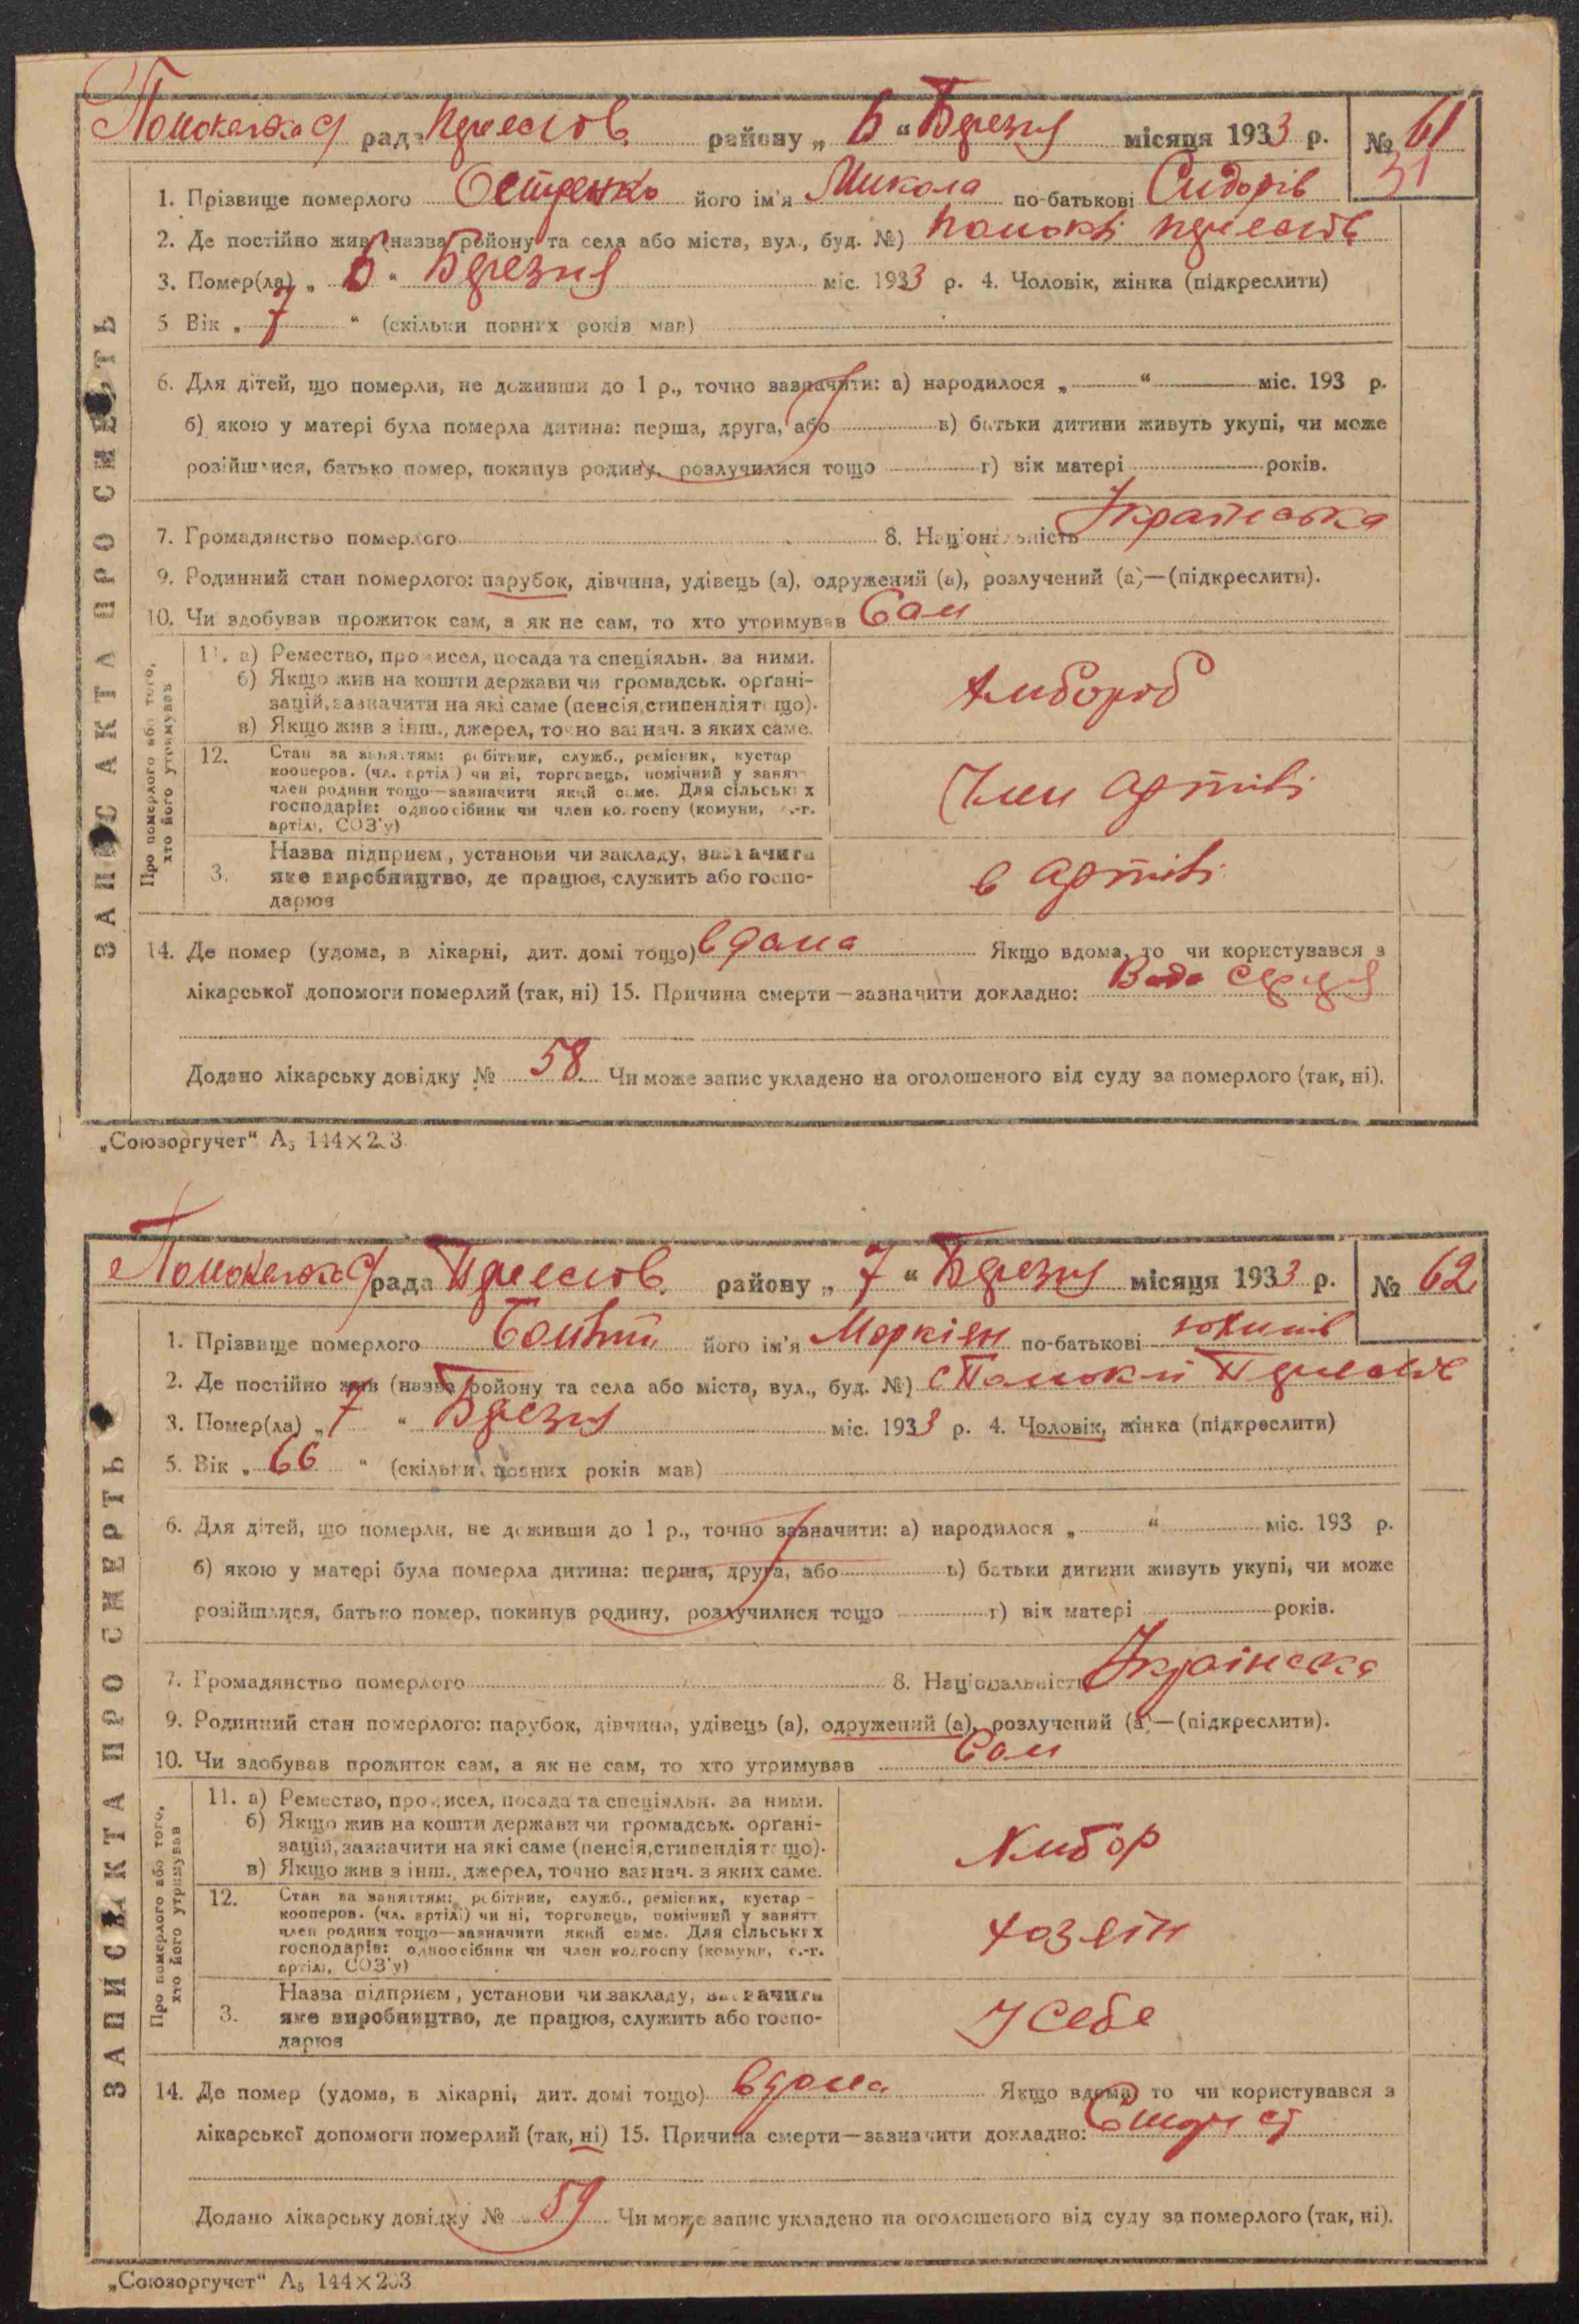 рада районy „ 6 “ Березня місяця 1933 р. № 61
31
1. Прізвище померлого Остренко його ім'я Микола по-батькові Сидорів
2. Де постійно жив (назва району та села або міста, вул., буд. №)
3. Помер(ла) „ 6 “ Березня міс. 1933 р. 4. Чоловік, жінка (підкреслити)
5 Вік „ 7 “ (скільки повних років мав)
6. Для дітей, що померли, не доживши до 1 р., точно зазначити: а) народилося „ “ міс. 193 р.
б) якою у матері була померла дитина: перша, друга, або в) батьки дитини живуть укупі, чи може
розійшлися, батько помер, покинув родину, розлучилися тощо г) вік матері років.
7. Громадянство померлого 8. Національність Українська
9. Родинний стан померлого: парубок, дівчина, удівець (а), одружений (а), розлучений (а)—(підкреслити).
10. Чи здобував прожиток сам, а як не сам, то хто утримував Сам
ЗАПИС АКТА ПРО СМЕРТЬ
Про померлого або того, хто його утримував
11. а) Ремество, промисел, посада та спеціяльн. за ними.
б) Якщо жив на кошти держави чи громадськ. орґані-
зацій, зазначити на які саме (пенсія, стипендія тощо).
в) Якщо жив з інш., джерел, точно зазнач. з яких саме.
Хлібороб
12. Стан за заняттям: робітник, служб., ремісник, кустар
кооперов. (чл. артілі) чи ні, торговець, помічний у занятт
член родини тощо—зазначити який саме. Для сільських
господарів: одноосібник чи член колгоспу (комуни, с.-г.
артілі, СОЗ'у)
Член артілі
3. Назва підприєм, установи чи закладу, зазначити
яке виробництво, де працює, служить або госпо-
дарює
в артілі
14. Де помер (удома, в лікарні, дит. домі тощо) вдома Якщо вдома, то чи користувався з
лікарської допомоги померлий (так, ні) 15. Причина смерти—зазначити докладно: Вада серця
Додано лікарську довідку № 58 Чи може запис укладено на оголошеного від суду за померлого (так, ні).
„Союзоргучет“ А5 144×203
рада району „ 7 “ Березня місяця 1933 р. № 62
1. Прізвище померлого його ім'я Маркіян по-батькові Юхимів
2. Де постійно жив (назва району та села або міста, вул., буд. №)
3. Помер(ла) „ 7 “ Березня міс. 1933 р. 4. Чоловік, жінка (підкреслити)
5. Вік „ 66 “ (скільки повних років мав)
6. Для дітей, що померли, не доживши до 1 р., точно зазначити: а) народилося „ “ міс. 193 р.
б) якою у матері була померла дитина: перша, друга, або в) батьки дитини живуть укупі, чи може
розійшлися, батько помер, покинув родину, розлучилися тощо г) вік матері років.
7. Громадянство померлого 8. Національність Українська
9. Родинний стан померлого: парубок, дівчина, удівець (а), одружений (а), розлучений (а)—(підкреслити).
10. Чи здобував прожиток сам, а як не сам, то хто утримував Сам
ЗАПИС АКТА ПРО СМЕРТЬ
Про померлого або того, хто його утримував
11. а) Ремество, промисел, посада та спеціяльн. за ними.
б) Якщо жив на кошти держави чи громадськ. орґані-
зацій, зазначити на які саме (пенсія, стипендія тощо).
в) Якщо жив з інш., джерел, точно зазнач. з яких саме.
Хлібор
12. Стан за заняттям: робітник, служб., ремісник, кустар –
кооперов. (чл. артілі) чи ні, торговець, помічний у занятт
член родини тощо—зазначити який саме. Для сільських
господарів: одноосібник чи член колгоспу (комуни, с.-г.
артілі, СОЗ'у)
хозяін
3. Назва підприєм, установи чи закладу, зазначити
яке виробництво, де працює, служить або госпо-
дарює
У себе
14. Де помер (удома, в лікарні, дит. домі тощо) вдома Якщо вдома, то чи користувався з
лікарської допомоги померлий (так, ні) 15. Причина смерти—зазначити докладно:
Додано лікарську довідку № 59 Чи може запис укладено на оголошеного від суду за померлого (так, ні).
„Союзоргучет“ А5 144×203